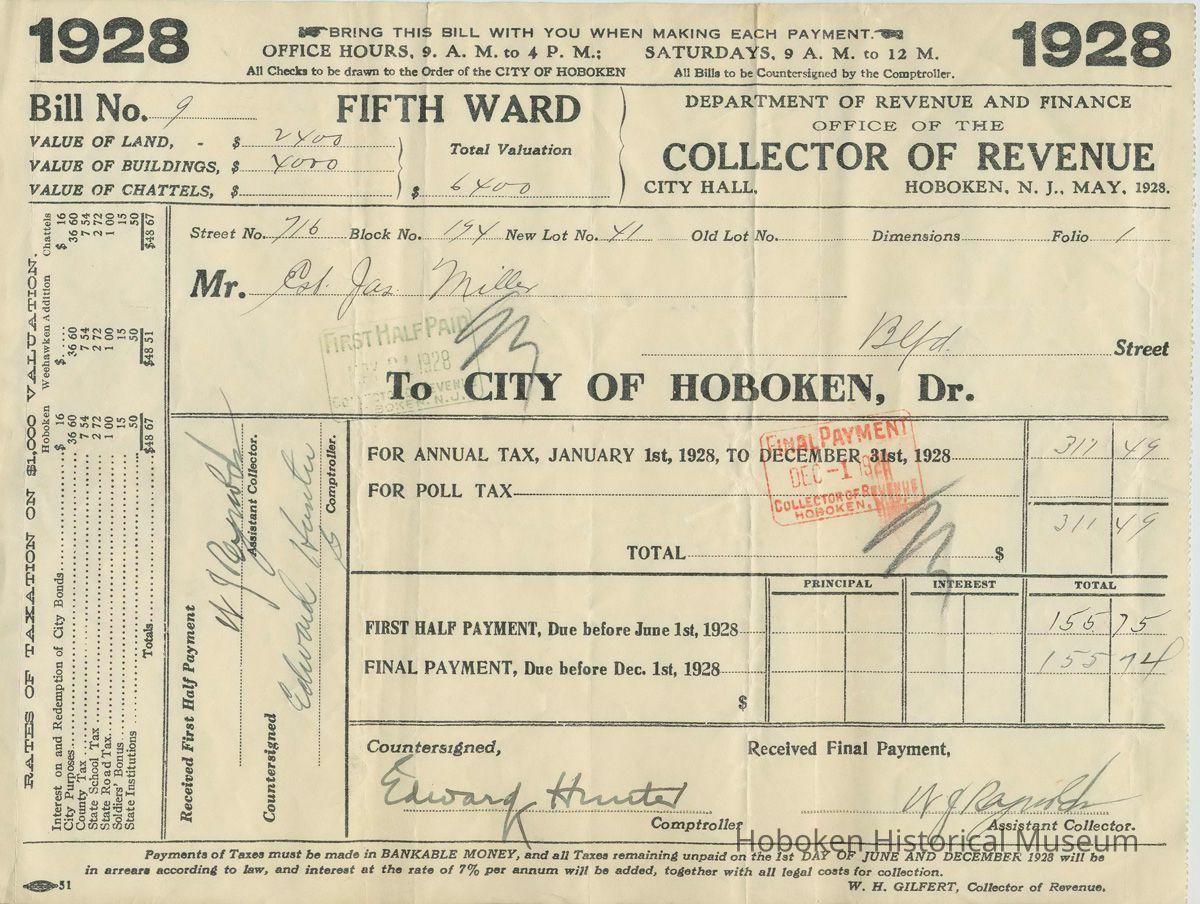 1928
BRING THIS BILL WITH YOU WHEN MAKING EACH PAYMENT.
1928
OFFICE HOURS, 9. A. M. to 4 P. M.; SATURDAYS, 9 A. M. to 12 M.
All Checks to be drawn to the Order of the CITY OF HOBOKEN All Bills to be Countersigned by the Comptroller.
Bill No. 9 FIFTH WARD
VALUE OF LAND, - $ 2400
VALUE OF BUILDINGS, $ 4000
VALUE OF CHATTELS, $
Total Valuation
$ 6400
DEPARTMENT OF REVENUE AND FINANCE
OFFICE OF THE
COLLECTOR OF REVENUE
CITY HALL. HOBOKEN, N. J., MAY, 1928.
RATES OF TAXATION ON $1,000 VALUATION.
Hoboken Weehawken Addition Chattels
Interest on and Redemption of City Bonds $ 16 $ $ 16
City Purposes 36 60 36 60 36 60
County Tax 7 54 7 54 7 54
State School Tax 2 72 2 72 2 72
State Road Tax 1 00 1 00 1 00
Soldiers' Bonus 15 15 15
State Institutions 50 50 50
Totals $48 67 $48 51 $48 67
Street No. 716 Block No. 194 New Lot No. 41 Old Lot No. Dimensions Folio 1
Mr. Est. Jas. Miller
Blfd. Street
FIRST HALF PAID
1928
HOBOKEN, N.J.
To CITY OF HOBOKEN, Dr.
Received First Half Payment
W J Reynolds
Assistant Collector.
Countersigned
Edward Hunter
Comptroller.
FOR ANNUAL TAX, JANUARY 1st, 1928, TO DECEMBER 31st, 1928 311 49
FOR POLL TAX
FINAL PAYMENT
DEC -1 1928
COLLECTOR OF REVENUE
HOBOKEN,
TOTAL $ 311 49
PRINCIPAL INTEREST TOTAL
FIRST HALF PAYMENT, Due before June 1st, 1928 155 75
FINAL PAYMENT, Due before Dec. 1st, 1928 155 74
$
Countersigned, Received Final Payment,
Edward Hunter W J Reynolds
Comptroller Assistant Collector.
Hoboken Historical Museum
Payments of Taxes must be made in BANKABLE MONEY, and all Taxes remaining unpaid on the 1st DAY OF JUNE AND DECEMBER 1928 will be
in arrears according to law, and interest at the rate of 7% per annum will be added, together with all legal costs for collection.
W. H. GILFERT, Collector of Revenue.
51